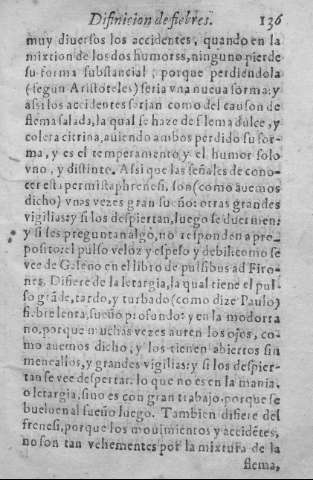 Difinicion de fiebres. 136
muy diversos los accidentes, quando en la
mixtion de los dos humores, ninguno pierde
su forma substancial; porque perdiendola
(segun Aristoteles) seria vna nueua forma: y
assi los accidentes serian como del causon de
flema salada, la qual se haze de flema dulce, y
colera citrina, auiendo ambos perdido su for-
ma, y es el temperamento, y el humor solo
vno, y distinto. Assi que las señales de cono-
cer esta permista phrenesi, son (como auemos
dicho) vnas vezes gran sueño: otras grandes
vigilias: y si los despiertan, luego se duermen:
y si les preguntan algo, no responden a pro-
posito: el pulso veloz y espeso y debil: como se
vee de Galeno en el libro de pulsibus ad Firo-
nes. Difiere de la letargia, la qual tiene el pul-
so grãde, tardo, y turbado (como dize Paulo)
fiebre lenta, sueño profundo: y en la modorra
no, porque muchas vezes auren los ojos, co-
mo auemos dicho, y los tienen abiertos sin
meneallos, y grandes vigilias: y si los despier-
tan se vee despertar: lo que no es en la mania,
o letargia, sino es con gran trabajo, porque se
bueluen al sueño luego. Tambien difiere del
frenesi, porque los mouimientos y accidẽtes,
no son tan vehementes por la mixtura de la
flema,